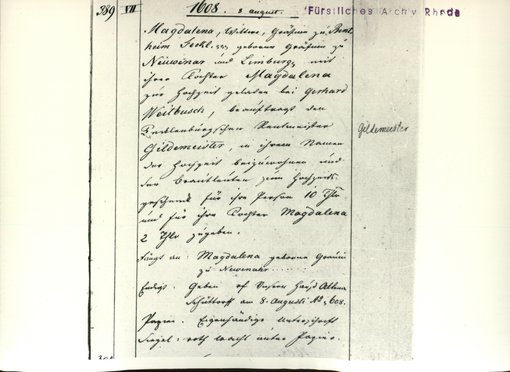 389 VII 1608. 8 august. Fürstliches Archiv Rheda
Magdalena, Wittwe, Gräfinn zu Bent
heim Teckl. geborene Gräfinn zu
Neuwenar und Limburg, mit
ihrer Tochter Magdalena
zur Hochzeit geladen bei Gerhard
Weilbusch, beauftragt den
Tecklenburgischen Rentmeister
Gildemeister, in ihrem Namen
Gildemeister
der Hochzeit beizuwohnen und
den Brautleuten zum Hochzeits
geschenk für ihre Person 10 Thlr
und für ihre Tochter Magdalena
2 Thlr zu geben.
Fängt an: Magdalena geborene Gräuin
zu Newenahr
Endigt: Geben uf Unserm Hauß Altena
Schüttorff am 8. Augusti Ao 608.
Papier. Eigenhändige Unterschrift
Siegel: roth Wachs unter Papier.